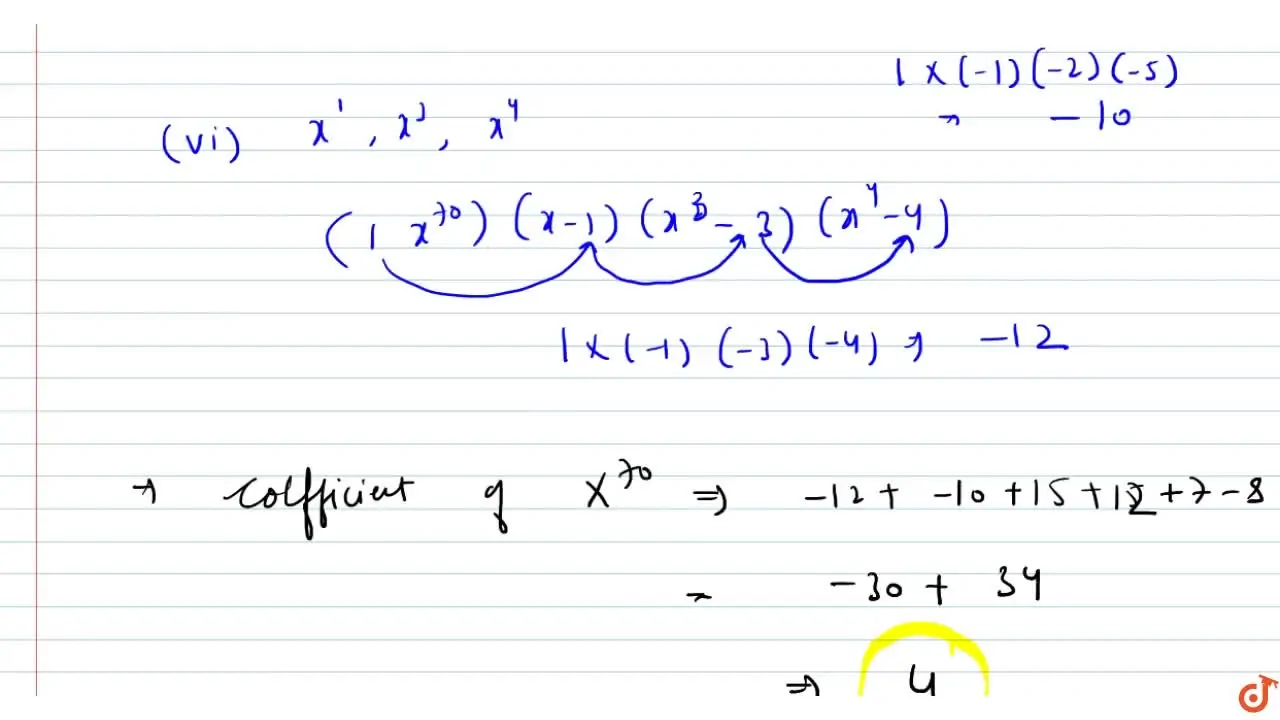 1 × (-1) (-2) (-5)
⇒ -10
(vi) x¹, x³, x⁴
(1 x⁷⁰) (x-1) (x³-3) (x⁴-4)
1 × (-1) (-3) (-4) ⇒ -12
→ Coefficient of X⁷⁰ ⇒ -12 + -10 + 15 + 12 + 7 - 8
= -30 + 34
⇒ 4